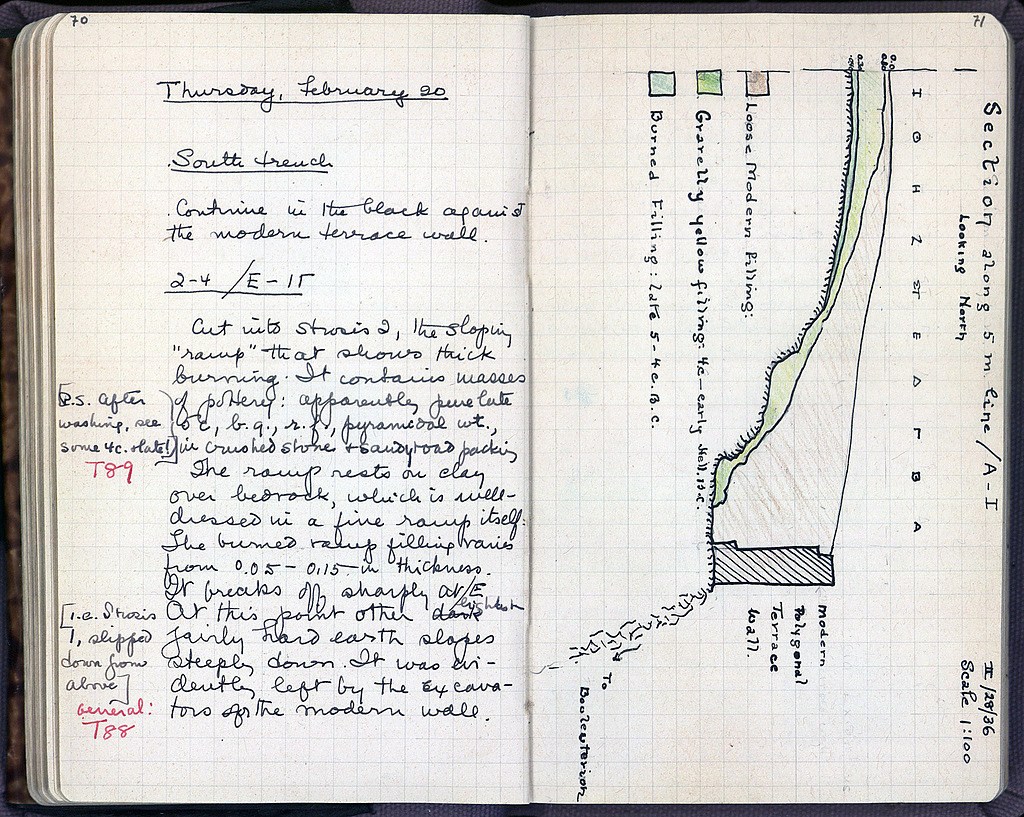 70
Thursday, February 20
South trench
Continue in the black against
the modern terrace wall.
2-4 /E-IΣΤ
Cut into strosis 2, the sloping
"ramp" that shows thick
burning. It contains masses
of pottery: apparently pure late
5 c, b.g., r.f., pyramidal wt.,
in crushed stone + sandy road packing
[P.S. After
washing, see
some 4c. slate!]
T89
The ramp rests on clay
over bedrock, which is well-
dressed in a fine ramp itself.
The burned ramp filling varies
from 0.05 - 0.15 in thickness.
It breaks off sharply at /E
At this point other dark
fairly hard earth slopes
steeply down. It was evi-
dently left by the excava-
tors of the modern wall.
[i.e. Strosis
1, slipped
down from
above]
General:
T88
71
Section along 5 m line / A-I
Looking North
I Θ H Z ΣΤ E Δ Γ B A
Loose Modern Filling:
Gravelly yellow filling: 4c-early Hell. B.C.
Burned Filling: late 5-4c. B.C.
Modern
Polygonal
Terrace
Wall.
To Bouleuterion
II/28/36
Scale 1:100